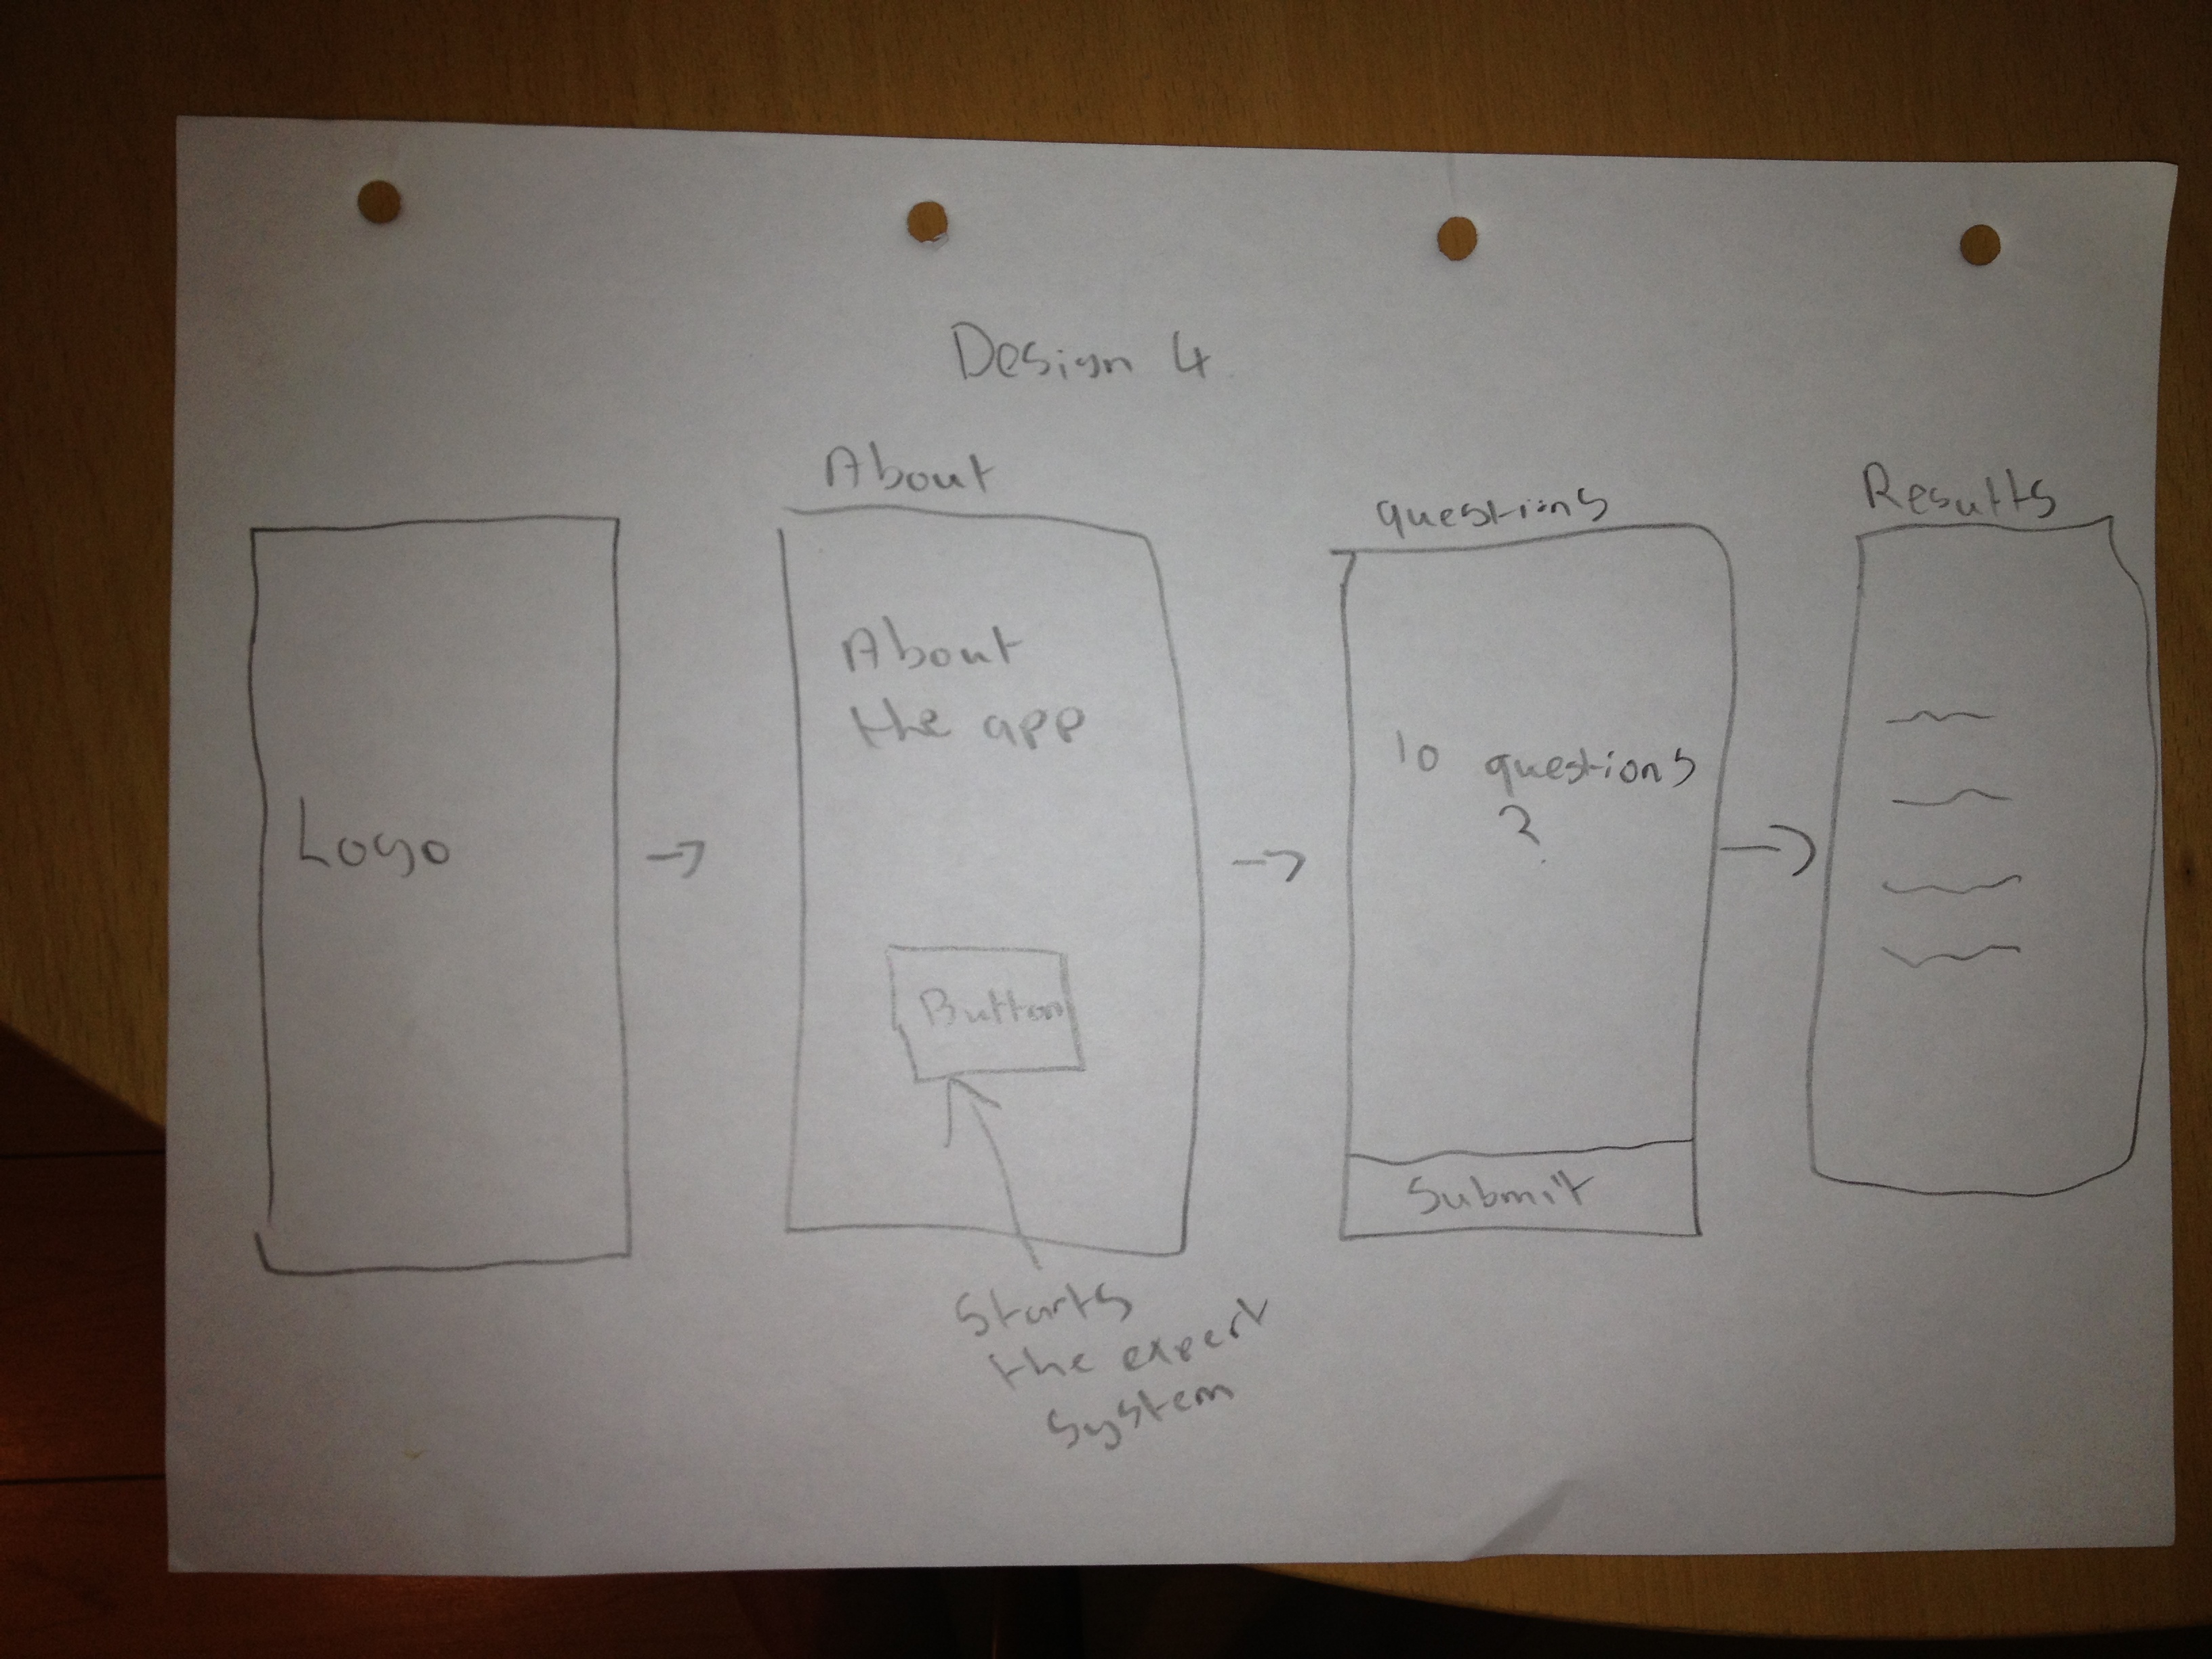 Design 4
Logo
About
About
the app
Button
Starts
the expert
system
questions
10 questions
?
Submit
Results